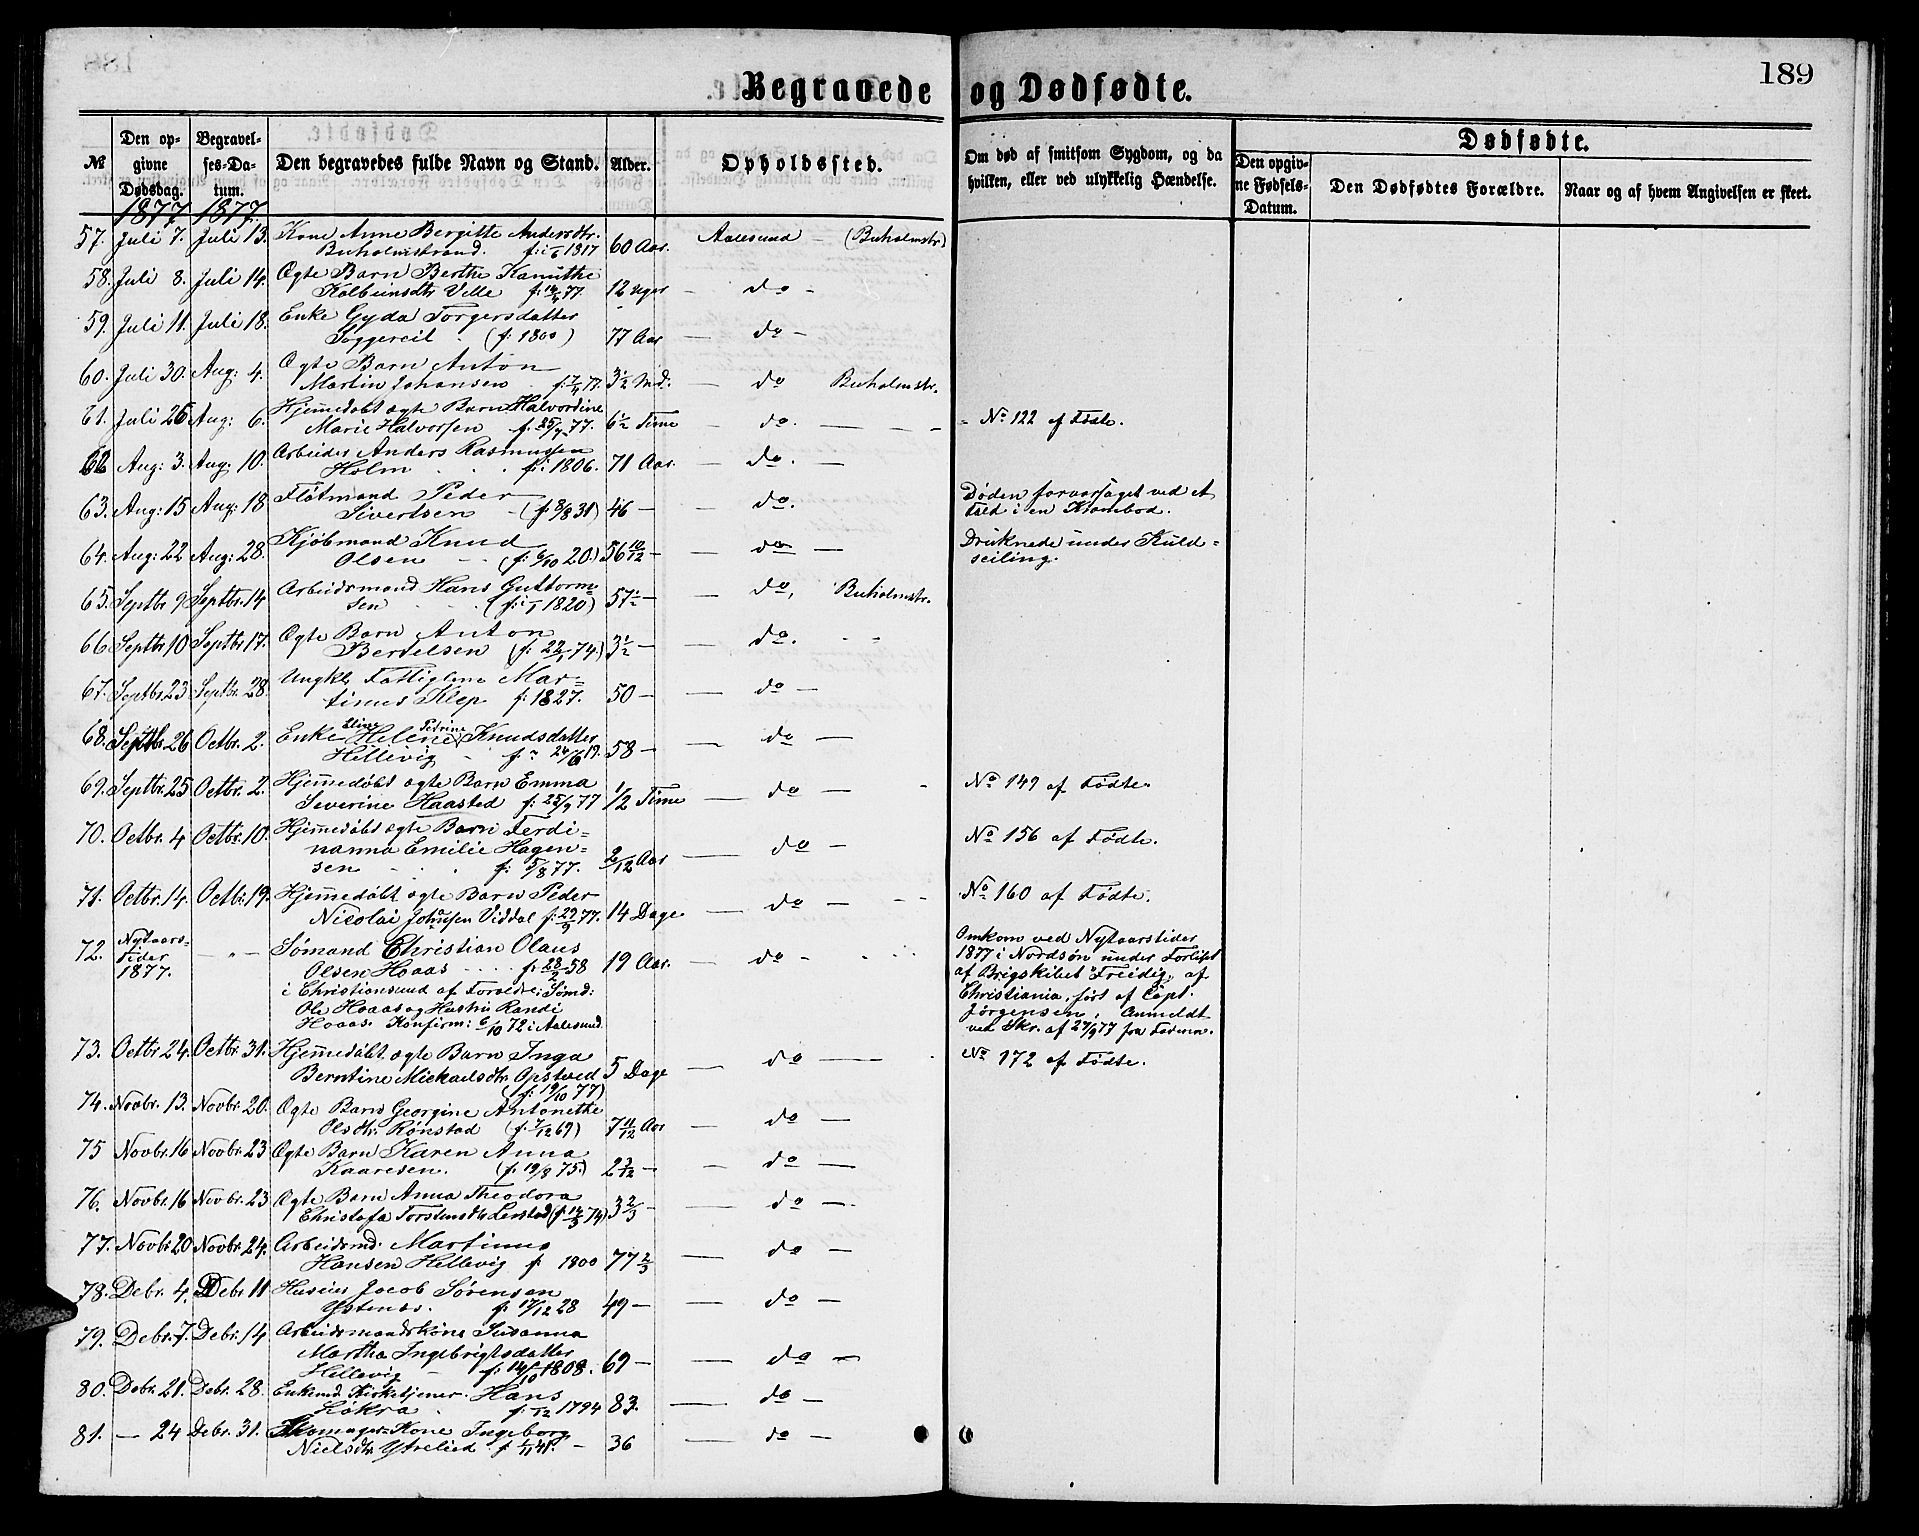 189
Begravede og Dødfødte.
№
Den opgivne Dødsdag.
Begravelses-Datum.
Den begravedes fulde Navn og Stand.
Alder.
Opholdssted.
Om død af smitsom Sygdom, og da hvilken, eller ved ulykkelig Hændelse.
Dødfødte.
Den opgivne Fødsels-Datum.
Den Dødfødtes Forældre.
Naar og af hvem Angivelsen er skeet.
1877. 1877.
57. Juli 7. Juli 13. Kone Anne Bergitte Andersdtr. 60 Aar. Aalesund – (Buholmstr.)
Buholmstrand. f: 1817
58. Juli 8. Juli 14. Ægte Barn Berthe Kanutthe
Kolbeinsdtr Velle f: 14/4 77. 12 Uger – do –
59. Juli 11. Juli 18. Enke Gyda Torgersdatter
(f: 1800) 77 Aar – do –
60. Juli 30. Aug: 4. Ægte Barn Anton
Martin Johansen f: 77. 3½ Md. – do Buholmstr.
61. Juli 26 Aug: 6. Hjemmedøbt ægte Barn Halvordine
Marie Halvorsen f: 25/7 77. 6½ Time – do. – No 122 af Fødte.
62 Aug: 3. Aug: 10. Arbeider Anders Rasmussen
Holm f: 1806. 71 Aar. – do. –
63. Aug: 15 Aug: 18 Fløtmand Peder
Sivertsen – (f: 3/8 31) 46 – do.
Døden foraarsaget ved et
Fald i en Krambod.
64. Aug: 22 Aug: 28. Kjøbmand Knud
Olsen – (f: 6/10 20.) 56 10/12 – do –
Druknede under Kuld-
seiling.
65. Septbr 9 Septbr. 14 Arbeidsmand Hans Guttorm-
sen (f: 1820) 57½ – do, Buholmstr.
66 Septbr 10 Septbr 17. Ægte Barn Anton
Bertelsen (f: 74.) 3½ – do.
67. Septbr. 23 Septbr. 28. Ungkl. Fattiglem Mar-
tinus Klep f: 1827. 50 – do –
68. Septbr. 26 Octbr. 2. Enke Eline Helene Petrine Knudsdatter
Hellevig – f: 24/6 19. 58 – do –
69. Septbr. 25 Octbr. 2. Hjemmedøbt ægte Barn Emma
Severine Haasted f: 25/9 77 1/2 Time – do – No 149 af Fødte.
70. Octbr. 4 Octbr. 10. Hjemmedøbt ægte Barn Ferdi-
nanna Emilie Hagen-
sen f: 5/8 77. 2/12 Aar – do – No 156 af Fødte.
71. Octbr. 14. Octbr. 19. Hjemmedøbt ægte Barn Peder
Nicolai Johnsen Viddal f: 29/9 77. 14 Dage – do – No 160 af Fødte.
72. Nytaars-
Tider
1877. – „ – Sømand Christian Olaus
Olsen Hoaas f: 28/2 58 19 Aar. – do –
i Christiansund af Forældre: Sømd:
Ole Hoaas og Hustru Randi
Hoaas. Konfirm: 6/10 72 i Aalesund.
Omkom ved Nytaarstider
1877 i Nordsøn under Forliset
af Brigskibet "Freidig" af
Christiania, ført af Capt.
Jørgensen. Anmeldt
ved Skr. af 27/9 77 fra Faderen.
73. Octbr. 24. Octbr. 31. Hjemmedøbt ægte Barn Inga
Berntine Mickaelsdtr Opstved 5 Dage – do – No 172 af Fødte.
(f: 19/10 77)
74. Novbr. 13. Novbr. 20. Ægte Barn Georgine Antonette
Olsdtr Rønstad (f: 7/12 69) 7 11/12 Aar – do –
75 Novbr. 16 Novbr. 23 Ægte Barn Karen Anna
Kaaresen. (f: 19/8 75.) 2 3/12 – do –
76. Novbr. 16 Novbr. 23 Ægte Barn Anna Theodora
Christofa Torstensdtr Lerstad (f: 74) 3 2/3 – do –
77. Novbr. 20 Novbr. 24. Arbeidsmd. Martinus
Hansen Hellevig f: 1800 77 2/3 – do –
78. Debr. 4. Debr 11 Huseier Jacob Sørensen
Ystenæs. f: 17/12 28 49 – do –
79. Debr. 7. Debr. 14 Arbeidsmandskone Susanna
Martha Ingebrigtsdatter
Hellevig – f: 14/10 1808. 69 – do –
80. Debr. 21. Debr. 28. Enkemd. Kirketjener Hans
Løkra f: /12 1794 83. – do –
81. – 24 Debr. 31. Skomager-Kone Ingeborg
Nielsdtr. Ytrelied f: 41. – 36 – do –